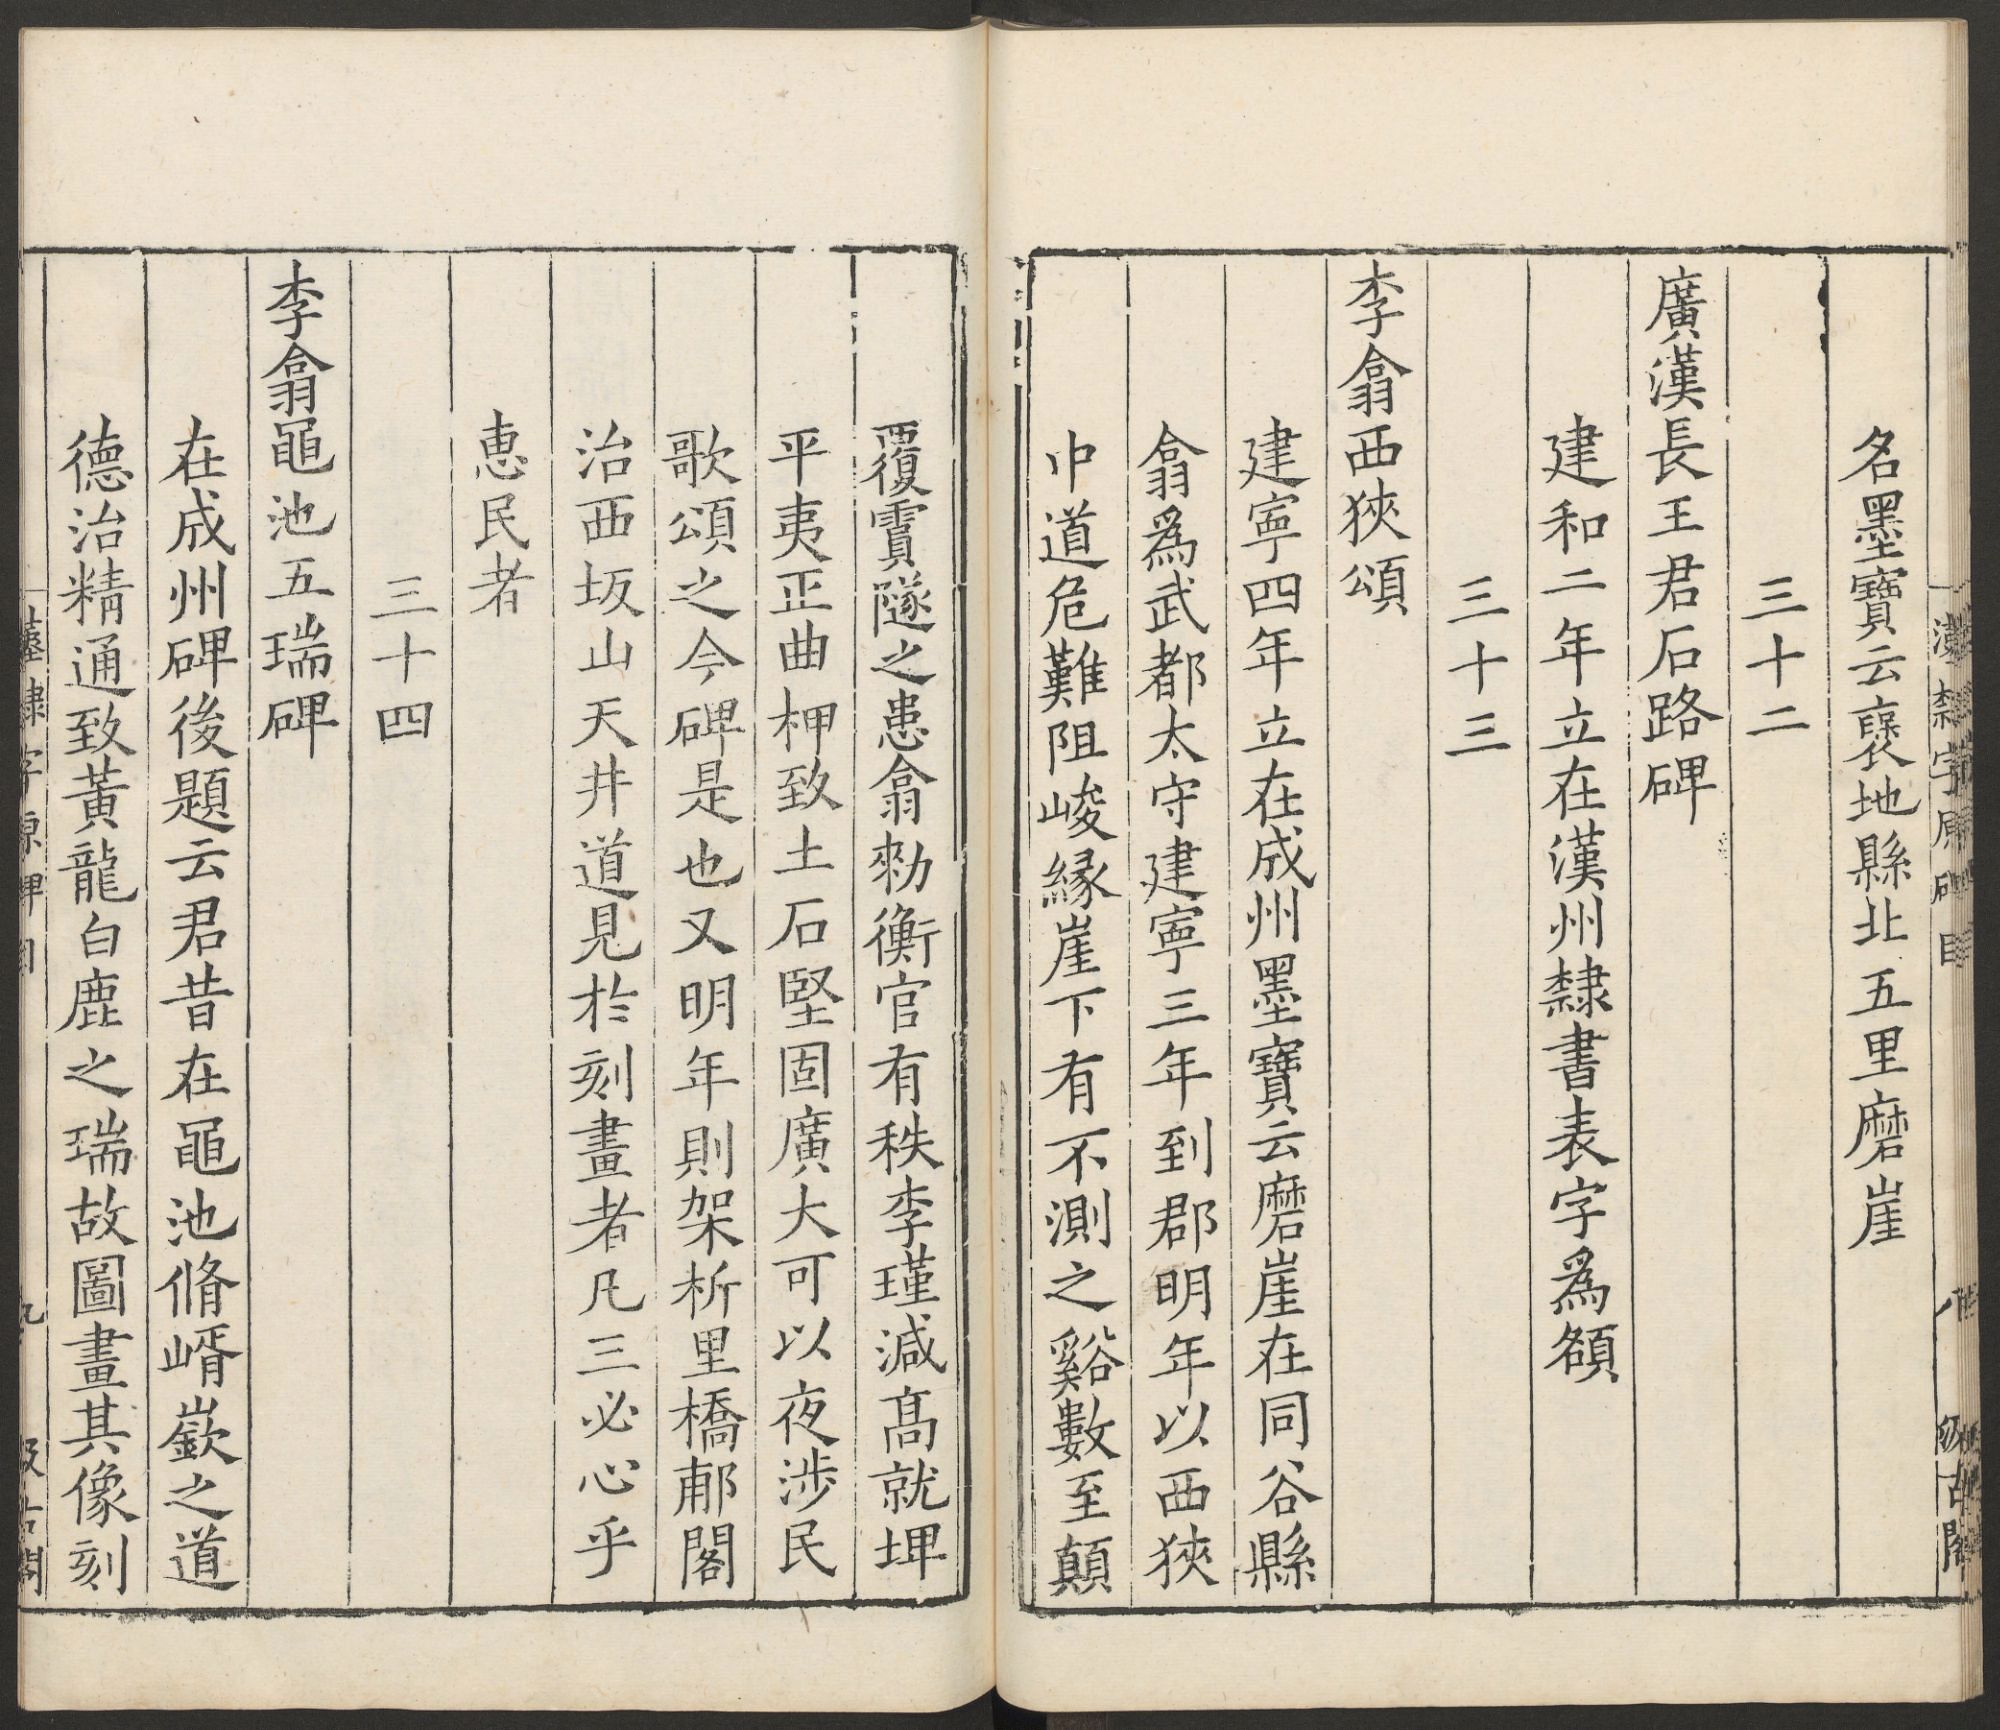 漢隸字原碑目 八 汲古閣
名墨寶云襃地縣北五里磨崖
三十二
廣漢長王君石路碑
建和二年立在漢州隸書表字爲額
三十三
李翕西狹頌
建寧四年立在成州墨寶云磨崖在同谷縣
翕爲武都太守建寧三年到郡明年以西狹
中道危難阻峻緣崖下有不測之谿數至顛
覆霣隧之患翕勑衡官有秩李瑾減高就埤
平夷正曲柙致土石堅固廣大可以夜涉民
歌頌之今碑是也又明年則架析里橋郙閣
治西坂山天井道見於刻畫者凡三必心乎
惠民者
三十四
李翕黽池五瑞碑
在成州碑後題云君昔在黽池脩崤嶔之道
德治精通致黃龍白鹿之瑞故圖畫其像刻
漢隸字原碑目 九 汲古閣